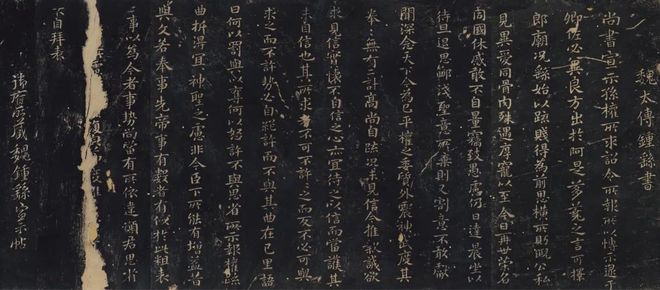 魏太傅鍾繇書
尚書宣示孫權所求詔令所報所以博示逮于
卿佐必冀良方出於阿是芻蕘之言可擇
郎廟況繇始以疏賤得為前恩橫所盱睨公私
見異愛同骨肉殊遇厚寵以至今日再世榮名
同國休慼敢不自量竊致愚慮仍日達晨坐以
待旦退思鄙淺聖意所棄則又割意不敢獻
聞深念天下今為已平權之委質外震神武度其
拳拳無有二計高尚自疏況未見信今推款誠欲
求見信實懷不自信之心亦宜待之以信而當護其
未自信也其所求者不可不許許之而反不必可與
求之而不許勢必自絕許而不與其曲在己里語
曰何以罰與以奪何以怒許不與思省所示報權疏
曲折得宜宜神聖之慮非今臣下所能有增益昔
與文若奉事先帝事有數者有似於此粗表
二事以為今者事勢尚當有所依違願君思省
不自拜表
魏鍾繇宣示帖